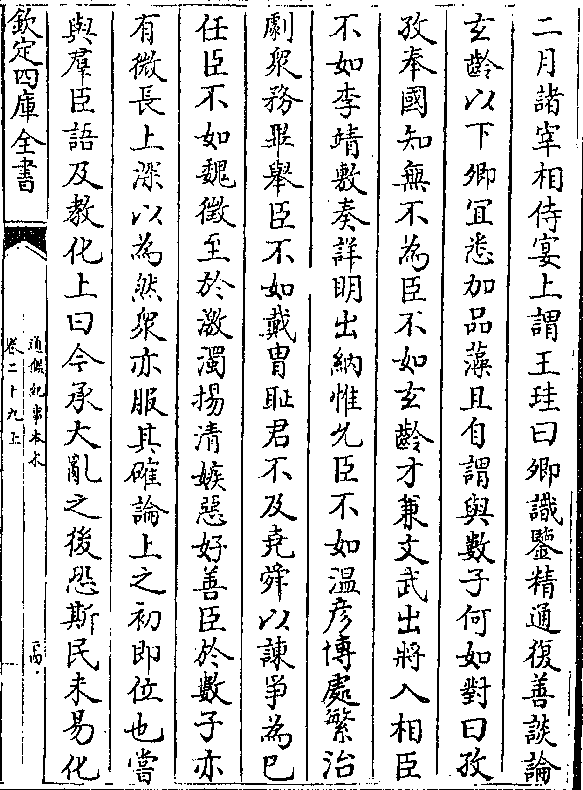 二月諸宰相侍宴上謂王珪曰卿識鑒精通復善談論
玄齡以下卿宜悉加品藻且自謂與數子何如對曰孜
孜奉國知無不為臣不如玄齡才兼文武出將入相臣
不如李靖敷奏詳明出納惟允臣不如温彦博處繁治
劇衆務畢舉臣不如戴胄耻君不及堯舜以諫爭為已
任臣不如魏徵至於激濁揚清嫉惡好善臣於數子亦
有微長上深以為然衆亦服其確論上之初即位也嘗
與羣臣語及教化上曰今承大亂之後恐斯民未易化
欽定四庫全書
通鑑紀事本末
卷二十九上